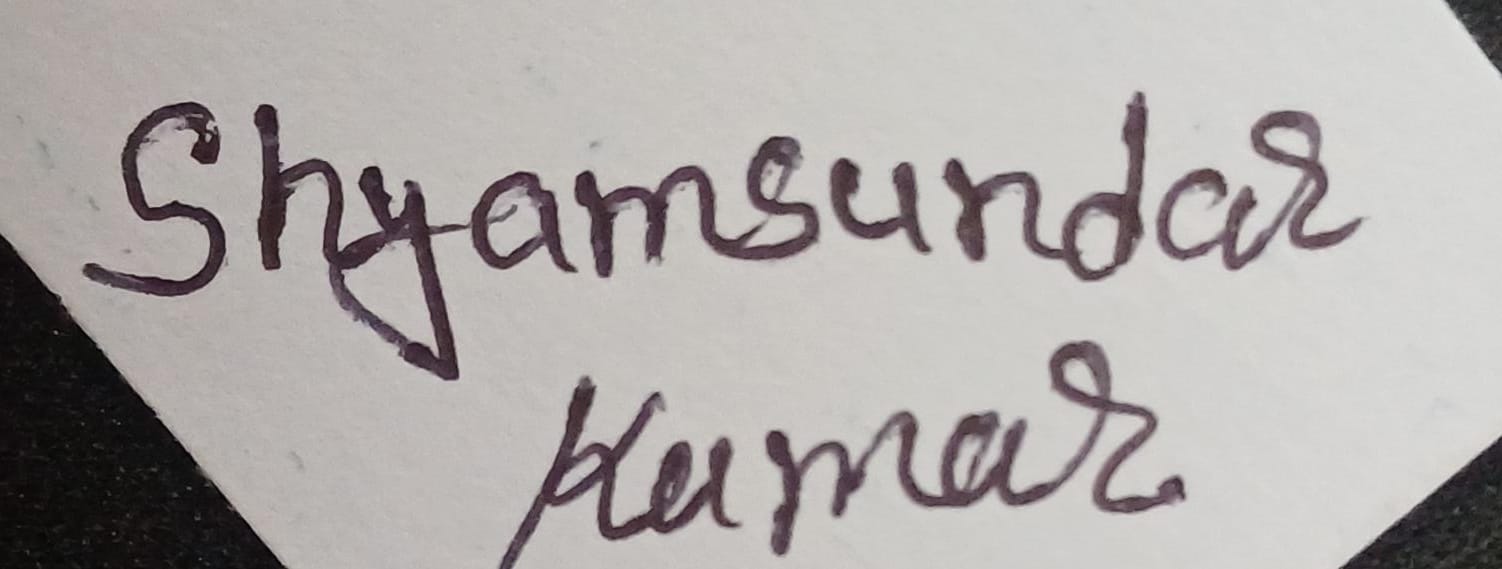 Shyamsundar
Kumar